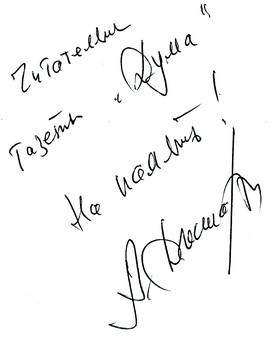 Читателям
газеты „Дума“
На память!